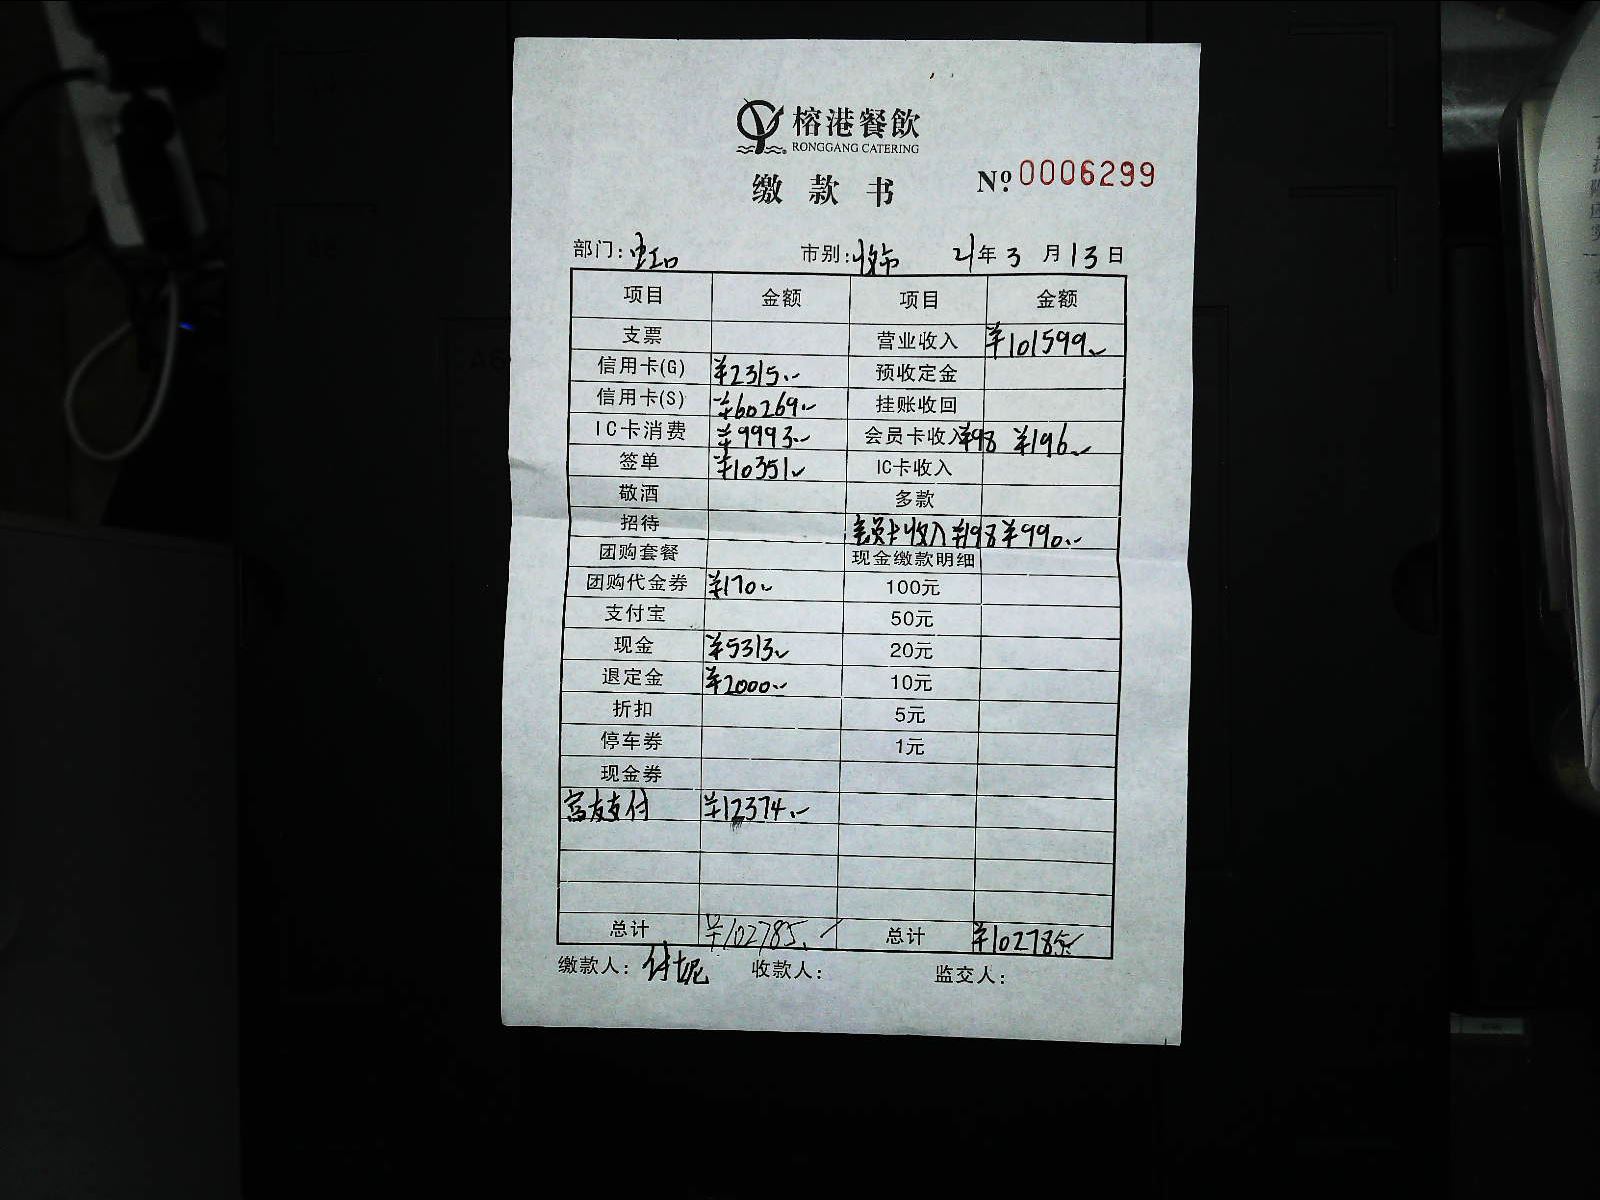 榕港餐飲
RONGGANG CATERING
缴款书 №0006299
部门:虹口 市别:收市 21年3月13日
项目 金额 项目 金额
支票 营业收入 ¥101599
信用卡(G) ¥2315 预收定金
信用卡(S) ¥60269 挂账收回
IC卡消费 ¥9993 会员卡收入¥98 ¥196
签单 ¥10351 IC卡收入
敬酒 多款
招待 会员卡收入¥198 ¥990
团购套餐 现金缴款明细
团购代金券 ¥170 100元
支付宝 50元
现金 ¥5313 20元
退定金 ¥2000 10元
折扣 5元
停车券 1元
现金券
富友支付 ¥12374
总计 ¥102785 总计 ¥102785
缴款人: 收款人: 监交人: